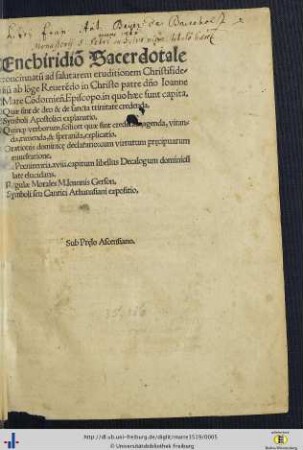 Enchiridiõ Sacerdotale
concinnatũ ad salutarem eruditionem Christifide-
liũ ab lõge Reuerẽdo in Christo patre dño Ioanne
Mare Cõdomieñ. Episcopo, in quo hæc sunt capita,
Quæ sint de deo & de sancta trinitate credenda.
Symboli Apostolici explanatio,
Quinque verborum, scilicet quæ sint credenda, agenda, vitan-
da, timenda, & speranda, explicatio.
Orationis dominicæ declaratio, cum virtutum præcipuarum
enarratione.
Pœnitentia, xviii. capitum libellus Decalogum dominicũ
late elucidans.
Regulæ Morales M. Ioannis Gerson,
Symboli seu Cantici Athanasiani expositio,
Sub Prelo Ascensiano.
http://dl.ub.uni-freiburg.de/diglit/marre1519/0005
© Universitätsbibliothek Freiburg